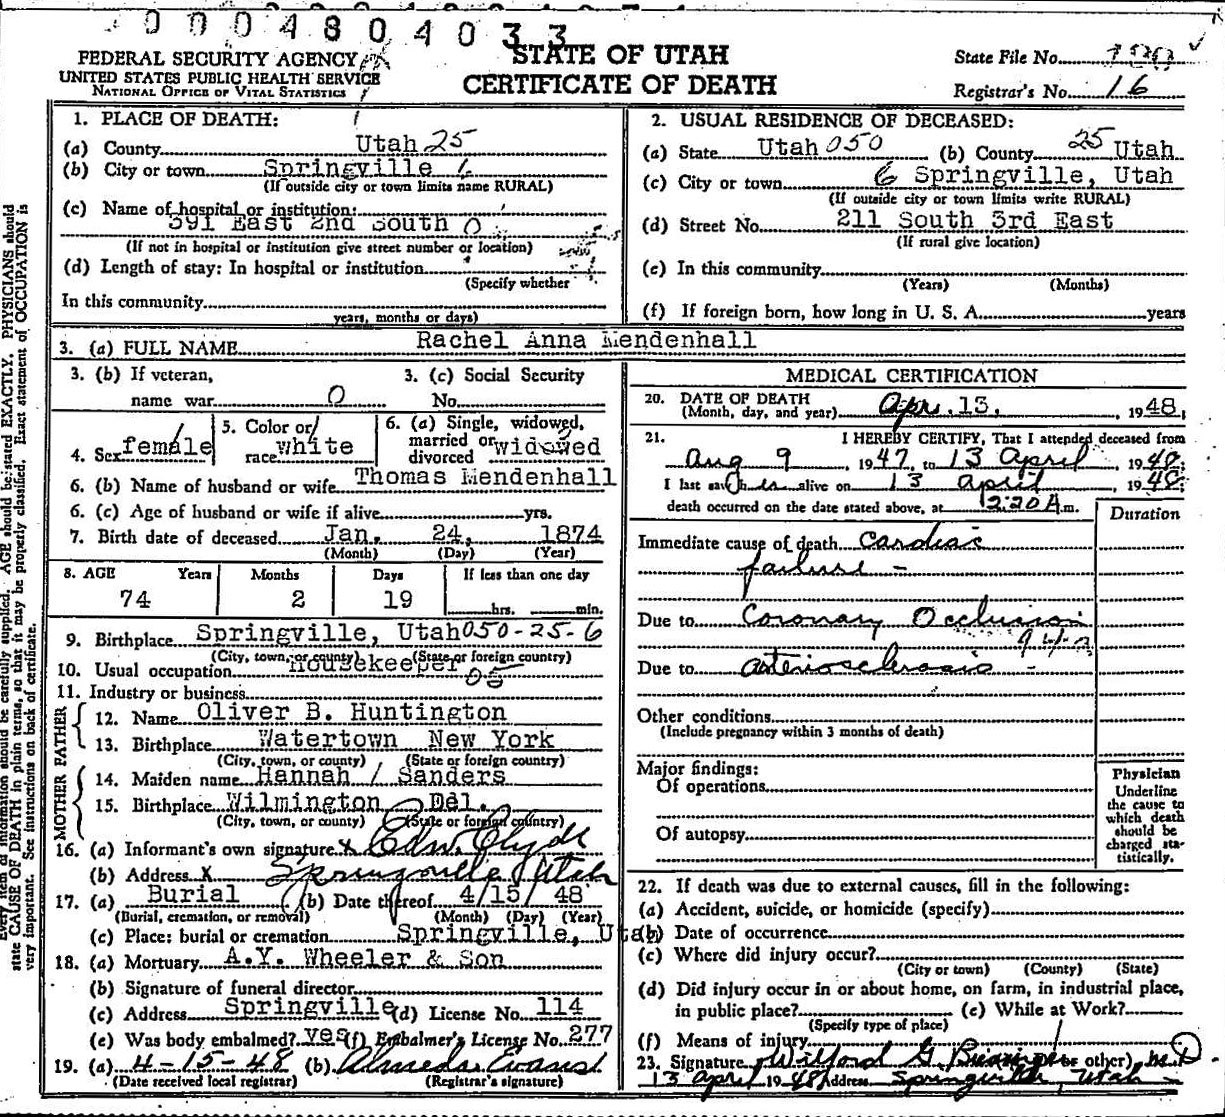 0004804033
STATE OF UTAH
CERTIFICATE OF DEATH
FEDERAL SECURITY AGENCY
UNITED STATES PUBLIC HEALTH SERVICE
NATIONAL OFFICE OF VITAL STATISTICS
State File No.
Registrar's No. 16
Every item of information should be carefully supplied. AGE should be stated EXACTLY. PHYSICIANS should
state CAUSE OF DEATH in plain terms, so that it may be properly classified. Exact statement of OCCUPATION is
very important. See instructions on back of certificate.
1. PLACE OF DEATH:
(a) County Utah 25
(b) City or town Springville
(If outside city or town limits name RURAL)
(c) Name of hospital or institution:
391 East 2nd South 0
(If not in hospital or institution give street number or location)
(d) Length of stay: In hospital or institution
(Specify whether
In this community
years, months or days)
2. USUAL RESIDENCE OF DECEASED:
(a) State Utah 050 (b) County 25 Utah
(c) City or town 6 Springville, Utah
(If outside city or town limits write RURAL)
(d) Street No. 211 South 3rd East
(If rural give location)
(e) In this community
(Years) (Months)
(f) If foreign born, how long in U. S. A. years
3. (a) FULL NAME Rachel Anna Mendenhall
3. (b) If veteran, name war 0
3. (c) Social Security No.
4. Sex female
5. Color or race white
6. (a) Single, widowed, married or divorced widowed
6. (b) Name of husband or wife Thomas Mendenhall
6. (c) Age of husband or wife if alive yrs.
7. Birth date of deceased Jan. 24, 1874
(Month) (Day) (Year)
8. AGE Years Months Days If less than one day
74 2 19 hrs. min.
9. Birthplace Springville, Utah 050-25-6
(City, town, or county) (State or foreign country)
10. Usual occupation housekeeper 05
11. Industry or business
FATHER
12. Name Oliver B. Huntington
13. Birthplace Watertown New York
(City, town, or county) (State or foreign country)
MOTHER
14. Maiden name Hannah Sanders
15. Birthplace Wilmington Del.
(City, town, or county) (State or foreign country)
16. (a) Informant's own signature x Edw. Clyde
(b) Address x Springville Utah
17. (a) Burial (b) Date thereof 4/15/48
(Burial, cremation, or removal) (Month) (Day) (Year)
(c) Place: burial or cremation Springville, Utah
18. (a) Mortuary A.Y. Wheeler & Son
(b) Signature of funeral director
(c) Address Springville (d) License No. 114
(e) Was body embalmed? yes (f) Embalmer's License No. 277
19. (a) 4-15-48 (b) Almeda Evans
(Date received local registrar) (Registrar's signature)
MEDICAL CERTIFICATION
20. DATE OF DEATH
(Month, day, and year) Apr. 13, 1948
21. I HEREBY CERTIFY, That I attended deceased from
Aug 9, 1947, to 13 April, 1948;
I last saw h er alive on 13 April, 1948;
death occurred on the date stated above, at 12:20 A.m.
Duration
Immediate cause of death Cardiac
failure -
Due to Coronary Occlusion
94a
Due to arteriosclerosis -
Other conditions
(Include pregnancy within 3 months of death)
Major findings:
Of operations
Of autopsy
Physician
Underline
the cause to
which death
should be
charged sta-
tistically.
22. If death was due to external causes, fill in the following:
(a) Accident, suicide, or homicide (specify)
(b) Date of occurrence
(c) Where did injury occur?
(City or town) (County) (State)
(d) Did injury occur in or about home, on farm, in industrial place,
in public place? (e) While at Work?
(Specify type of place)
(f) Means of injury
23. Signature Wilford G. or other) M.D.
13 April 1948 Address Springville, Utah